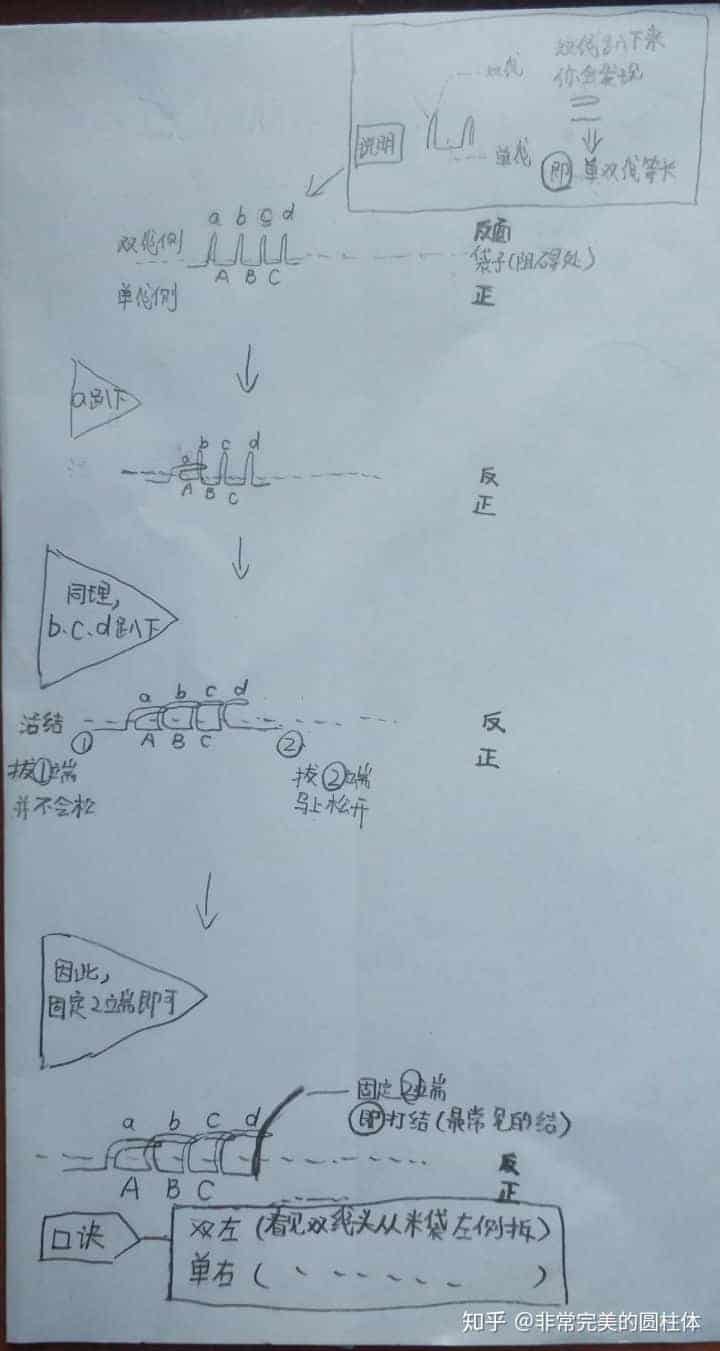 双线趴下来
双线
你会发现
说明
单线
即 单双线等长
a b c d
双线侧
反面
袋子(阻碍处)
A B C
单线侧
正
a趴下
a b c d
A B C
反
正
同理,
b.c.d趴下
a b c d
活结
① ②
A B C
反
正
拔①端
并不会松
拔②端
马上松开
因此,
固定2端即可
固定②端
即打结(最常见的结)
a b c d
A B C
反
正
口诀
双左(看见双线头从米袋左侧拆)
单右( 、、、、、、 )
知乎 @非常完美的圆柱体